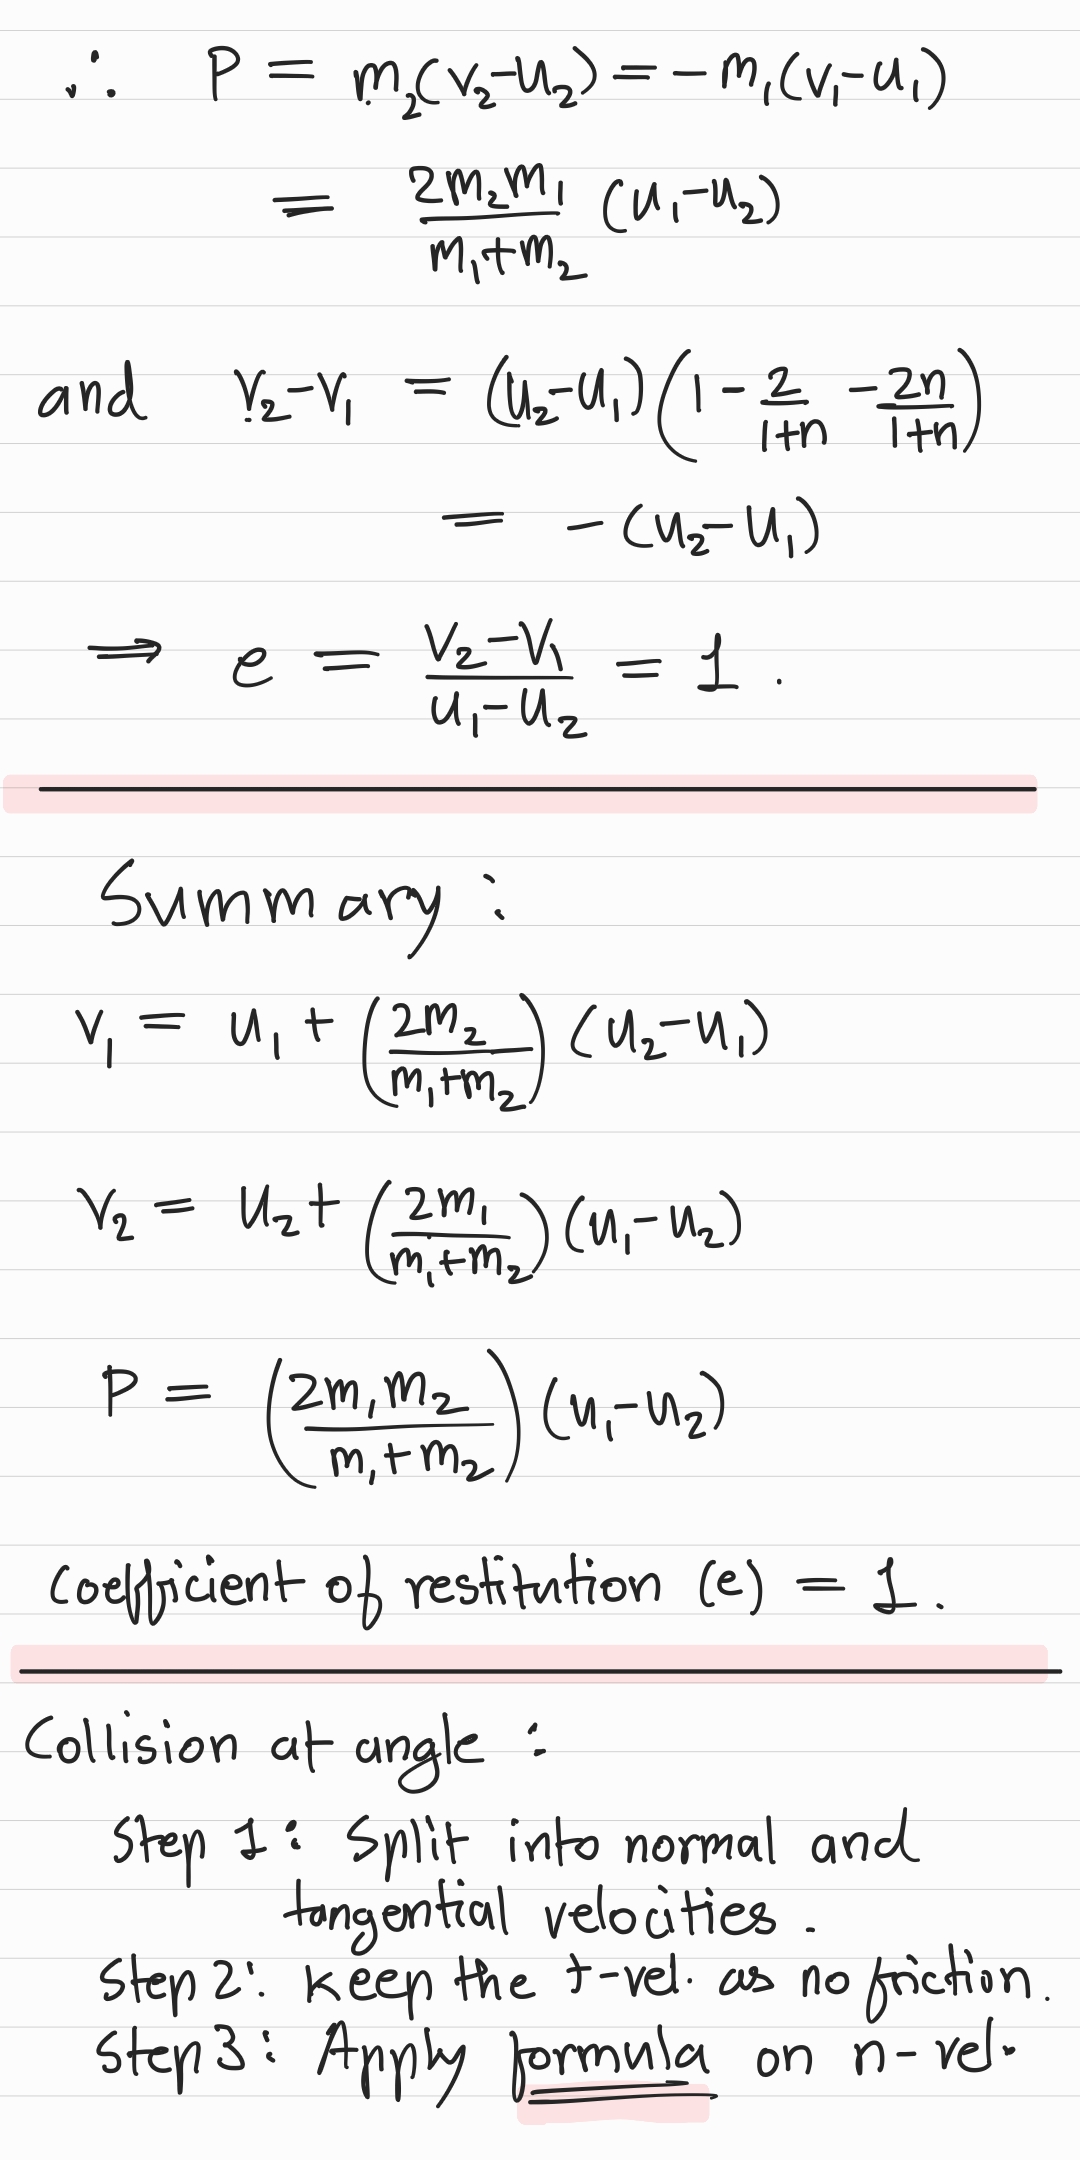 ∴ P = m₂(v₂-u₂) = -m₁(v₁-u₁)
= 2m₂m₁/(m₁+m₂) (u₁-u₂)
and v₂-v₁ = (u₂-u₁)(1 - 2/(1+n) - 2n/(1+n))
= -(u₂-u₁)
⟹ e = (v₂-v₁)/(u₁-u₂) = 1.
Summary :
v₁ = u₁ + (2m₂/(m₁+m₂)) (u₂-u₁)
v₂ = u₂ + (2m₁/(m₁+m₂)) (u₁-u₂)
P = (2m₁m₂/(m₁+m₂)) (u₁-u₂)
Coefficient of restitution (e) = 1.
Collision at angle :
Step 1: Split into normal and
tangential velocities.
Step 2: Keep the t-vel. as no friction.
Step 3: Apply formula on n-vel.